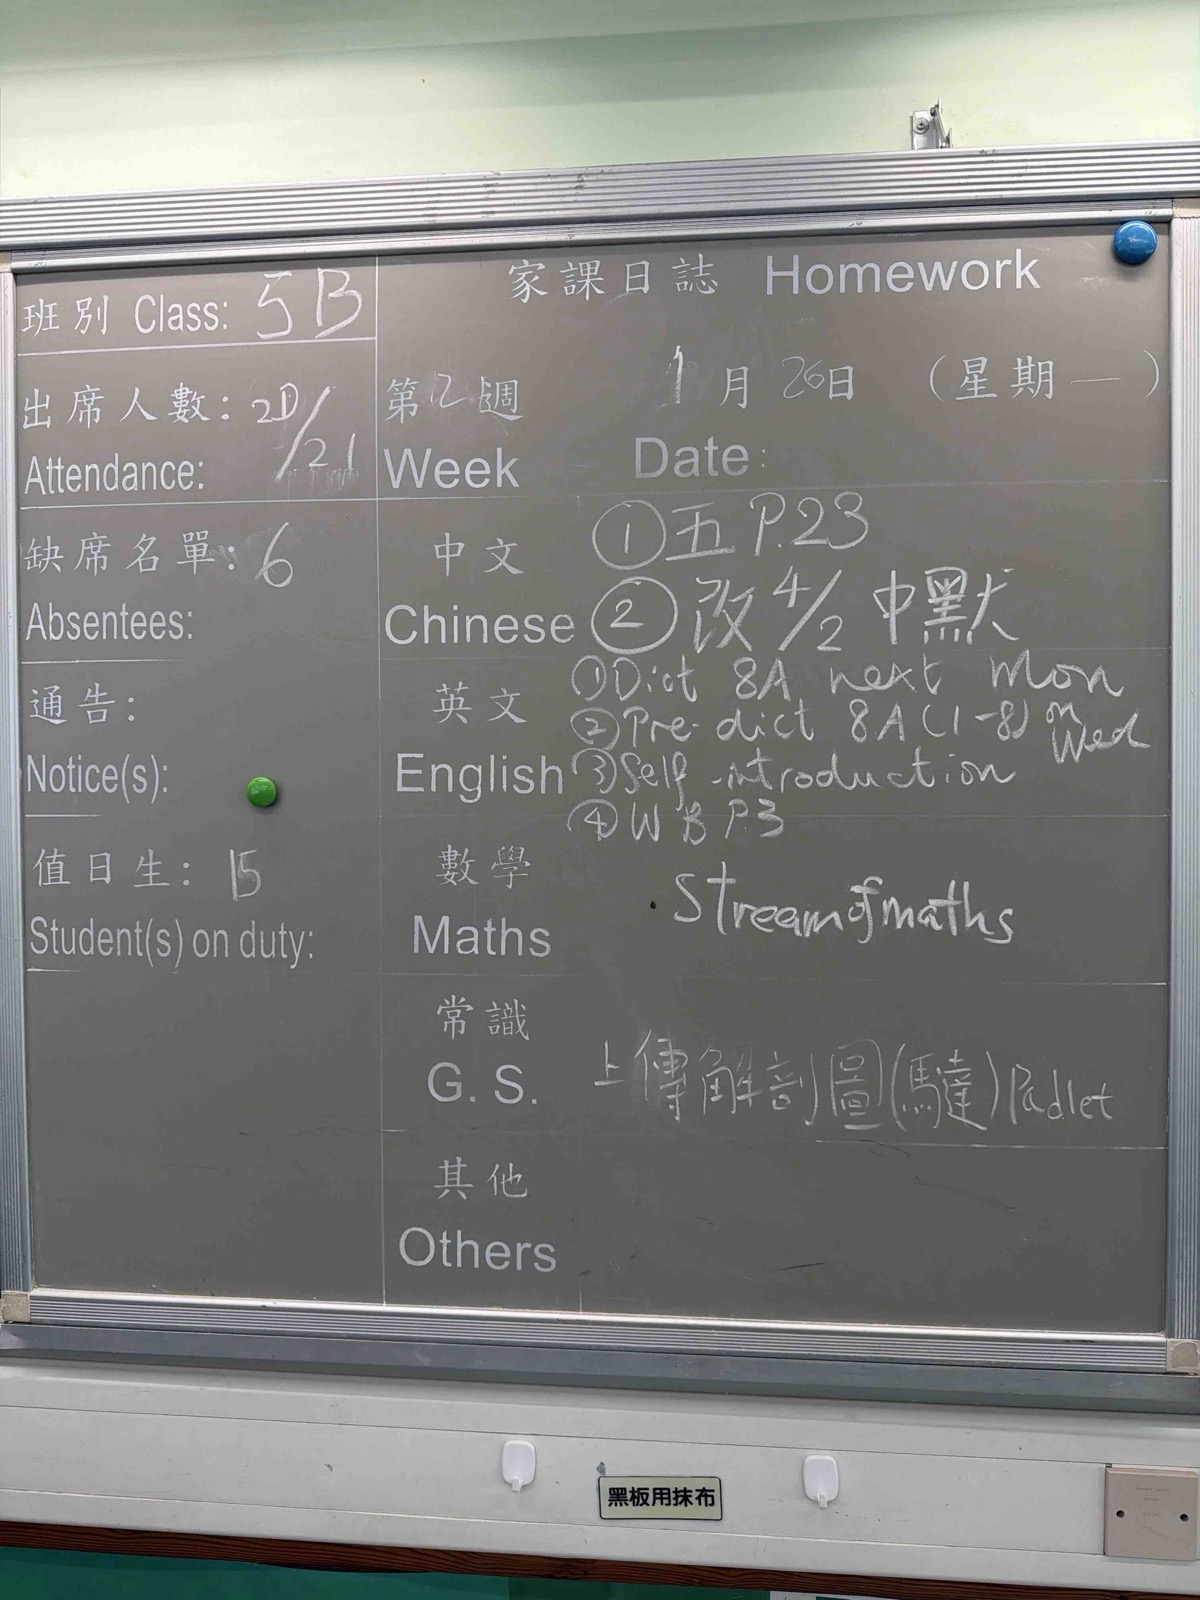 家課日誌 Homework
班別 Class: 5B
出席人數: 20/21
Attendance:
第12週 1月26日 (星期一)
Week Date:
缺席名單: 6
Absentees:
通告:
Notice(s):
值日生: 15
Student(s) on duty:
中文 ①五 P.23
Chinese ②改 4/2 中默
英文 ①Dict 8A next Mon
②Pre-dict 8A (1-8) on Wed
English ③Self-introduction
④WB P.3
數學
Maths Stream of maths
常識
G. S. 上傳解剖圖(驋達) Padlet
其他
Others
黑板用抹布